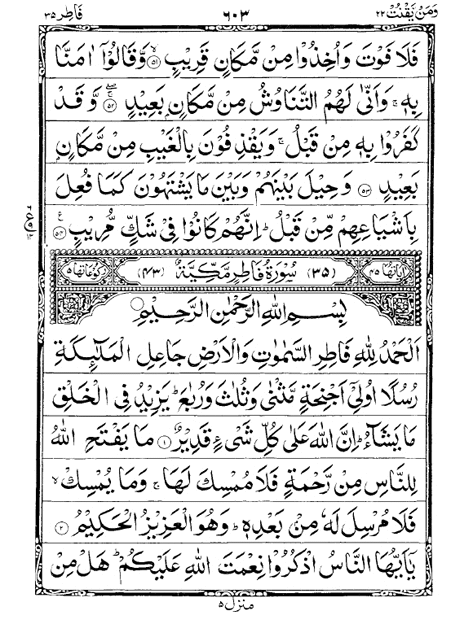 وَمَنْ يَّقْنُتْ ٢٢ ٦٠٣ فَاطِر ٣٥
فَلَا فَوْتَ وَاُخِذُوْا مِنْ مَّكَانٍ قَرِيْبٍ ۙ ٥١ وَّقَالُوْٓا اٰمَنَّا
بِهٖ ۚ وَاَنّٰى لَهُمُ التَّنَاوُشُ مِنْ مَّكَانٍۭ بَعِيْدٍ ۚ ٥٢ وَّقَدْ
كَفَرُوْا بِهٖ مِنْ قَبْلُ ۚ وَيَقْذِفُوْنَ بِالْغَيْبِ مِنْ مَّكَانٍۭ
بَعِيْدٍ ٥٣ وَحِيْلَ بَيْنَهُمْ وَبَيْنَ مَا يَشْتَهُوْنَ كَمَا فُعِلَ
بِاَشْيَاعِهِمْ مِّنْ قَبْلُ ؕ اِنَّهُمْ كَانُوْا فِيْ شَكٍّ مُّرِيْبٍ ٥٤
اٰيَاتُهَا ٤٥ (٣٥) سُوْرَةُ فَاطِرٍ مَّكِّيَّةٌ (٤٣) رُكُوْعَاتُهَا ٥
بِسْمِ اللهِ الرَّحْمٰنِ الرَّحِيْمِ
اَلْحَمْدُ لِلّٰهِ فَاطِرِ السَّمٰوٰتِ وَالْاَرْضِ جَاعِلِ الْمَلٰٓئِكَةِ
رُسُلًا اُولِيْٓ اَجْنِحَةٍ مَّثْنٰى وَثُلٰثَ وَرُبٰعَ ؕ يَزِيْدُ فِي الْخَلْقِ
مَا يَشَآءُ ؕ اِنَّ اللهَ عَلٰى كُلِّ شَيْءٍ قَدِيْرٌ ١ مَا يَفْتَحِ اللهُ
لِلنَّاسِ مِنْ رَّحْمَةٍ فَلَا مُمْسِكَ لَهَا ۚ وَمَا يُمْسِكْ ۙ
فَلَا مُرْسِلَ لَهٗ مِنْۢ بَعْدِهٖ ؕ وَهُوَ الْعَزِيْزُ الْحَكِيْمُ ٢
يٰٓاَيُّهَا النَّاسُ اذْكُرُوْا نِعْمَتَ اللهِ عَلَيْكُمْ ؕ هَلْ مِنْ
منزل ٥